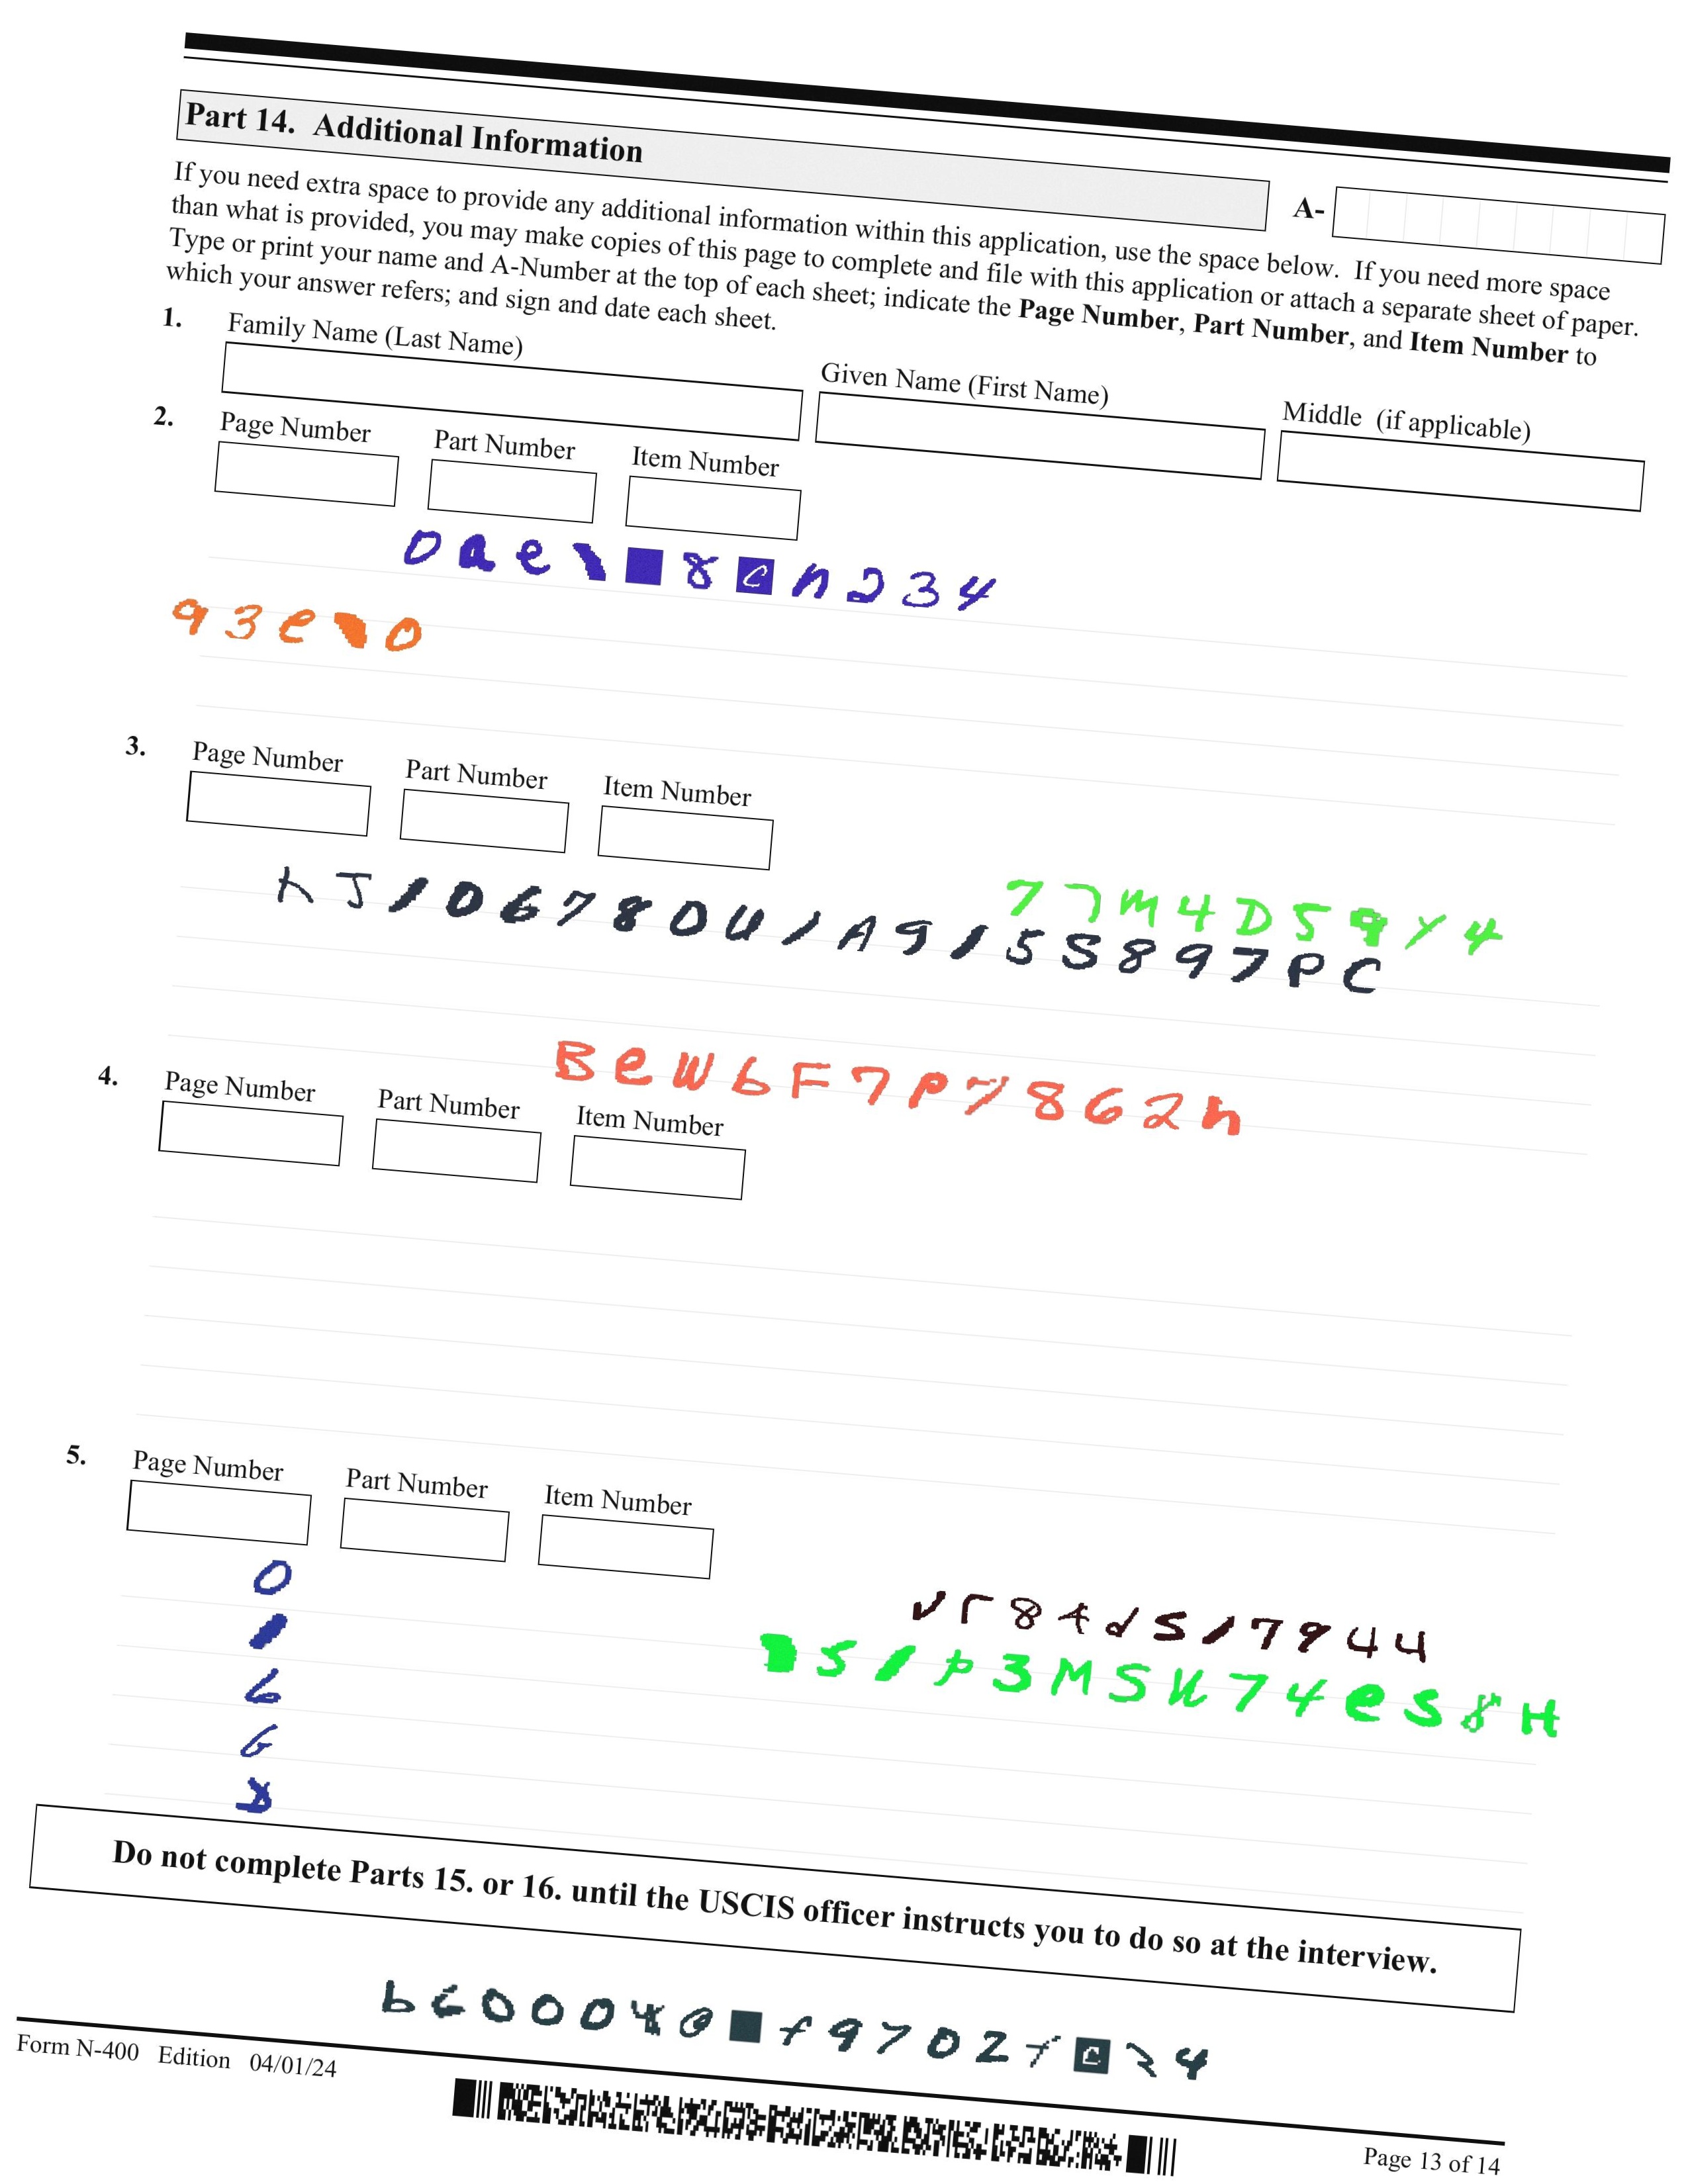 Part 14. Additional Information
A-
If you need extra space to provide any additional information within this application, use the space below. If you need more space
than what is provided, you may make copies of this page to complete and file with this application or attach a separate sheet of paper.
Type or print your name and A-Number at the top of each sheet; indicate the Page Number, Part Number, and Item Number to
which your answer refers; and sign and date each sheet.
1. Family Name (Last Name) Given Name (First Name) Middle (if applicable)
2. Page Number Part Number Item Number
93e10
3. Page Number Part Number Item Number
77M4D59Y4
KJ106780U1A9155897PC
BeWbF7P7862n
4. Page Number Part Number Item Number
5. Page Number Part Number Item Number
vr8td517944
Do not complete Parts 15. or 16. until the USCIS officer instructs you to do so at the interview.
Form N-400 Edition 04/01/24
Page 13 of 14